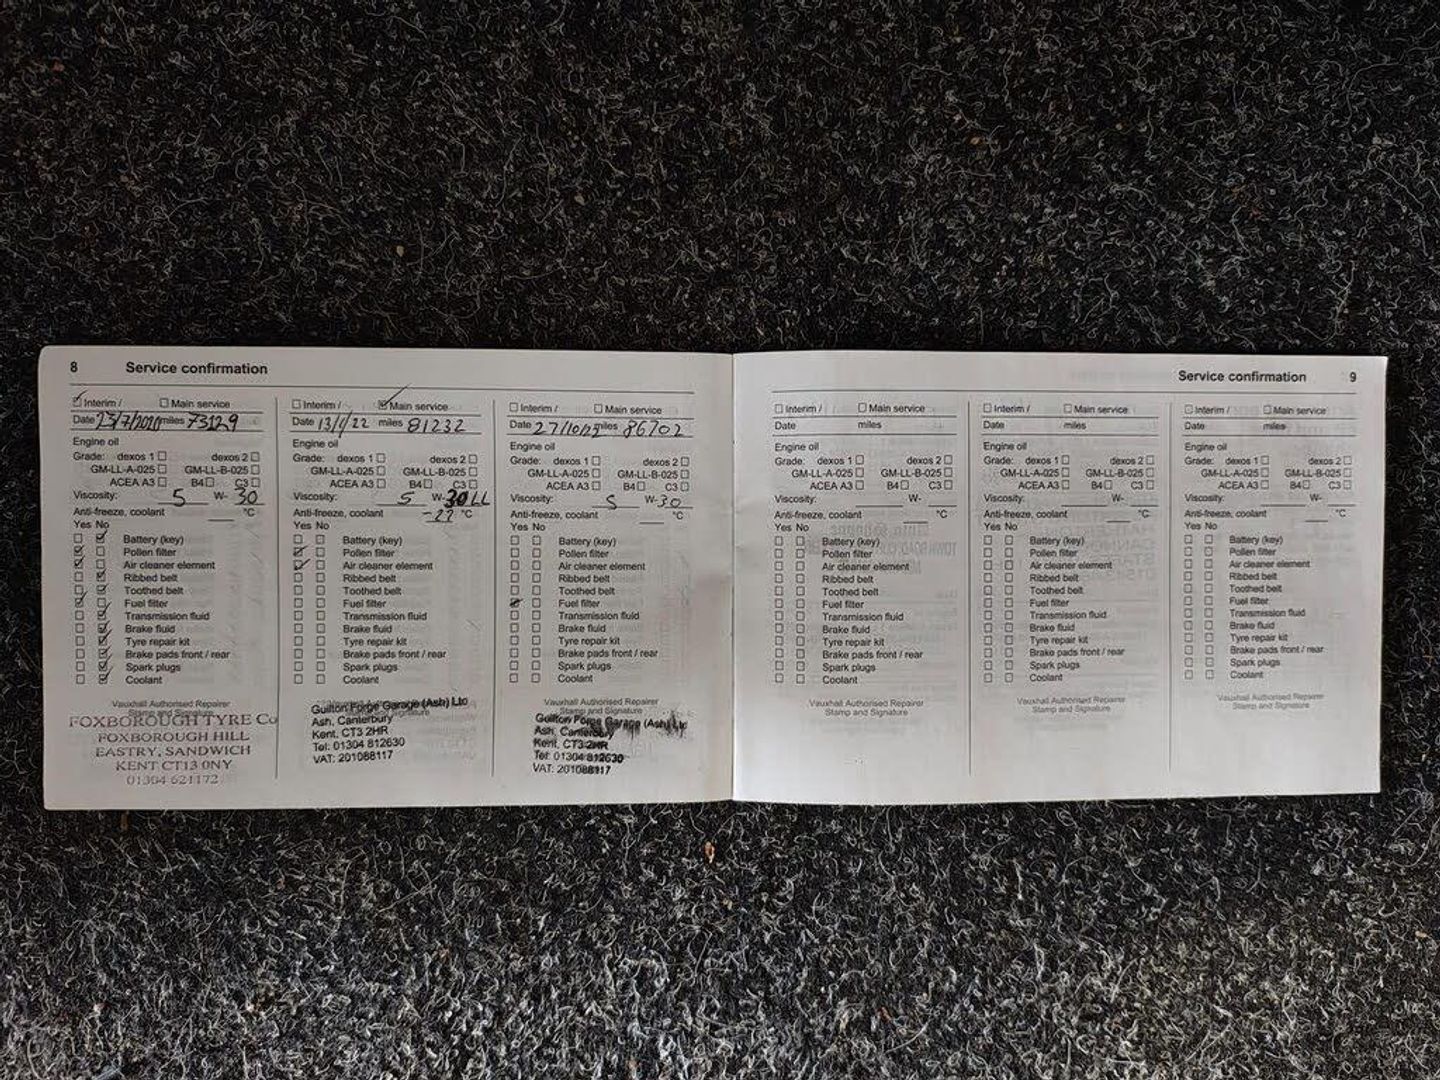 8 Service confirmation
☑ Interim / ☐ Main service
Date 23/7/2020 miles 73129
Engine oil
Grade: dexos 1 ☐ dexos 2 ☐
GM-LL-A-025 ☐ GM-LL-B-025 ☐
ACEA A3 ☐ B4 ☐ C3 ☐
Viscosity: 5 W- 30
Anti-freeze, coolant ___ °C
Yes No
☐ ☑ Battery (key)
☑ ☐ Pollen filter
☑ ☐ Air cleaner element
☐ ☑ Ribbed belt
☐ ☑ Toothed belt
☑ ☐ Fuel filter
☐ ☑ Transmission fluid
☐ ☑ Brake fluid
☐ ☑ Tyre repair kit
☐ ☑ Brake pads front / rear
☐ ☑ Spark plugs
☐ ☑ Coolant
Vauxhall Authorised Repairer
Stamp and Signature
FOXBOROUGH TYRE Co
FOXBOROUGH HILL
EASTRY, SANDWICH
KENT CT13 0NY
01304 621172
☐ Interim / ☑ Main service
Date 22 miles 81232
Engine oil
Grade: dexos 1 ☐ dexos 2 ☐
GM-LL-A-025 ☐ GM-LL-B-025 ☐
ACEA A3 ☐ B4 ☐ C3 ☐
Viscosity: 5 W- 30 LL
Anti-freeze, coolant °C
Yes No
☐ ☐ Battery (key)
☑ ☐ Pollen filter
☑ ☐ Air cleaner element
☐ ☐ Ribbed belt
☐ ☐ Toothed belt
☐ ☐ Fuel filter
☐ ☐ Transmission fluid
☐ ☐ Brake fluid
☐ ☐ Tyre repair kit
☐ ☐ Brake pads front / rear
☐ ☐ Spark plugs
☐ ☐ Coolant
Guilton Forge Garage (Ash) Ltd
Ash, Canterbury
Kent, CT3 2HR
Tel: 01304 812630
VAT: 201088117
☐ Interim / ☐ Main service
Date miles 86702
Engine oil
Grade: dexos 1 ☐ dexos 2 ☐
GM-LL-A-025 ☐ GM-LL-B-025 ☐
ACEA A3 ☐ B4 ☐ C3 ☐
Viscosity: 5 W- 30
Anti-freeze, coolant ___ °C
Yes No
☐ ☐ Battery (key)
☐ ☐ Pollen filter
☐ ☐ Air cleaner element
☐ ☐ Ribbed belt
☐ ☐ Toothed belt
☑ ☐ Fuel filter
☐ ☐ Transmission fluid
☐ ☐ Brake fluid
☐ ☐ Tyre repair kit
☐ ☐ Brake pads front / rear
☐ ☐ Spark plugs
☐ ☐ Coolant
Vauxhall Authorised Repairer
Stamp and Signature
Guilton Forge Garage (Ash) Ltd
Ash, Canterbury
Kent, CT3 2HR
Tel: 01304 812630
VAT: 201088117
Service confirmation 9
☐ Interim / ☐ Main service
Date miles
Engine oil
Grade: dexos 1 ☐ dexos 2 ☐
GM-LL-A-025 ☐ GM-LL-B-025 ☐
ACEA A3 ☐ B4 ☐ C3 ☐
Viscosity: W-
Anti-freeze, coolant ___ °C
Yes No
☐ ☐ Battery (key)
☐ ☐ Pollen filter
☐ ☐ Air cleaner element
☐ ☐ Ribbed belt
☐ ☐ Toothed belt
☐ ☐ Fuel filter
☐ ☐ Transmission fluid
☐ ☐ Brake fluid
☐ ☐ Tyre repair kit
☐ ☐ Brake pads front / rear
☐ ☐ Spark plugs
☐ ☐ Coolant
Vauxhall Authorised Repairer
Stamp and Signature
☐ Interim / ☐ Main service
Date miles
Engine oil
Grade: dexos 1 ☐ dexos 2 ☐
GM-LL-A-025 ☐ GM-LL-B-025 ☐
ACEA A3 ☐ B4 ☐ C3 ☐
Viscosity: W-
Anti-freeze, coolant ___ °C
Yes No
☐ ☐ Battery (key)
☐ ☐ Pollen filter
☐ ☐ Air cleaner element
☐ ☐ Ribbed belt
☐ ☐ Toothed belt
☐ ☐ Fuel filter
☐ ☐ Transmission fluid
☐ ☐ Brake fluid
☐ ☐ Tyre repair kit
☐ ☐ Brake pads front / rear
☐ ☐ Spark plugs
☐ ☐ Coolant
Vauxhall Authorised Repairer
Stamp and Signature
☐ Interim / ☐ Main service
Date miles
Engine oil
Grade: dexos 1 ☐ dexos 2 ☐
GM-LL-A-025 ☐ GM-LL-B-025 ☐
ACEA A3 ☐ B4 ☐ C3 ☐
Viscosity: W-
Anti-freeze, coolant ___ °C
Yes No
☐ ☐ Battery (key)
☐ ☐ Pollen filter
☐ ☐ Air cleaner element
☐ ☐ Ribbed belt
☐ ☐ Toothed belt
☐ ☐ Fuel filter
☐ ☐ Transmission fluid
☐ ☐ Brake fluid
☐ ☐ Tyre repair kit
☐ ☐ Brake pads front / rear
☐ ☐ Spark plugs
☐ ☐ Coolant
Vauxhall Authorised Repairer
Stamp and Signature